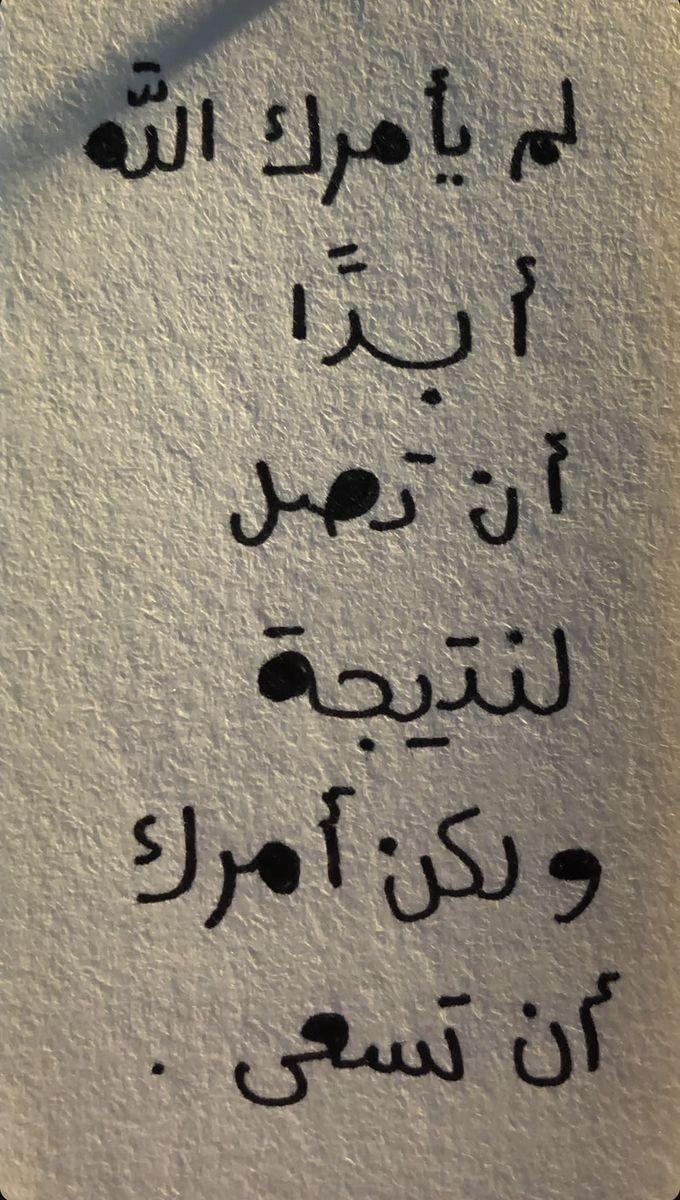 لم يأمرك اللّٰه
أبدًا
أن تصل
لنتيجة
ولكن أمرك
أن تسعى .